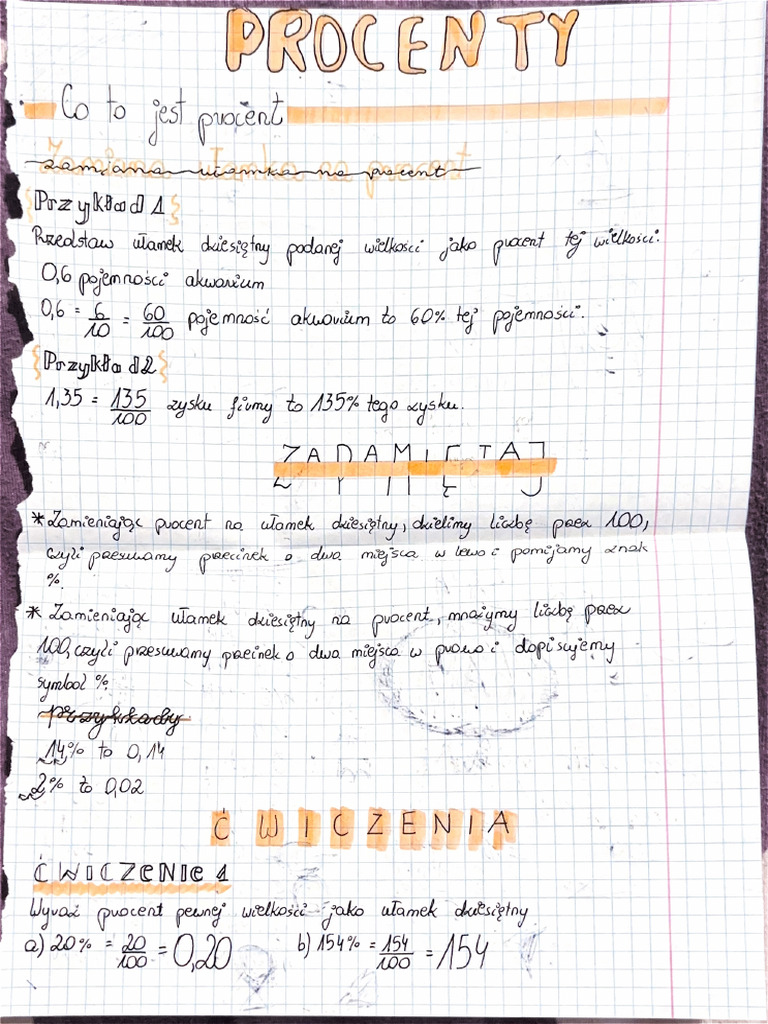 PROCENTY
Co to jest procent
Zamiana ułamka na procent
Przykład 1
Przedstaw ułamek dziesiętny podanej wielkości jako procent tej wielkości.
0,6 pojemności akwarium
0,6 = 6/10 = 60/100 pojemność akwarium to 60% tej pojemności.
Przykład 2
1,35 = 135/100 zysku firmy to 135% tego zysku.
ZAPAMIĘTAJ
* Zamieniając procent na ułamek dziesiętny, dzielimy liczbę przez 100,
czyli przesuwamy przecinek o dwa miejsca w lewo i pomijamy znak
%.
* Zamieniając ułamek dziesiętny na procent, mnożymy liczbę przez
100, czyli przesuwamy przecinek o dwa miejsca w prawo i dopisujemy
symbol %.
przykłady
14% to 0,14
2% to 0,02
ĆWICZENIA
ĆWICZENIE 1
Wyraź procent pewnej wielkości jako ułamek dziesiętny
a) 20% = 20/100 = 0,20 b) 154% = 154/100 = 154